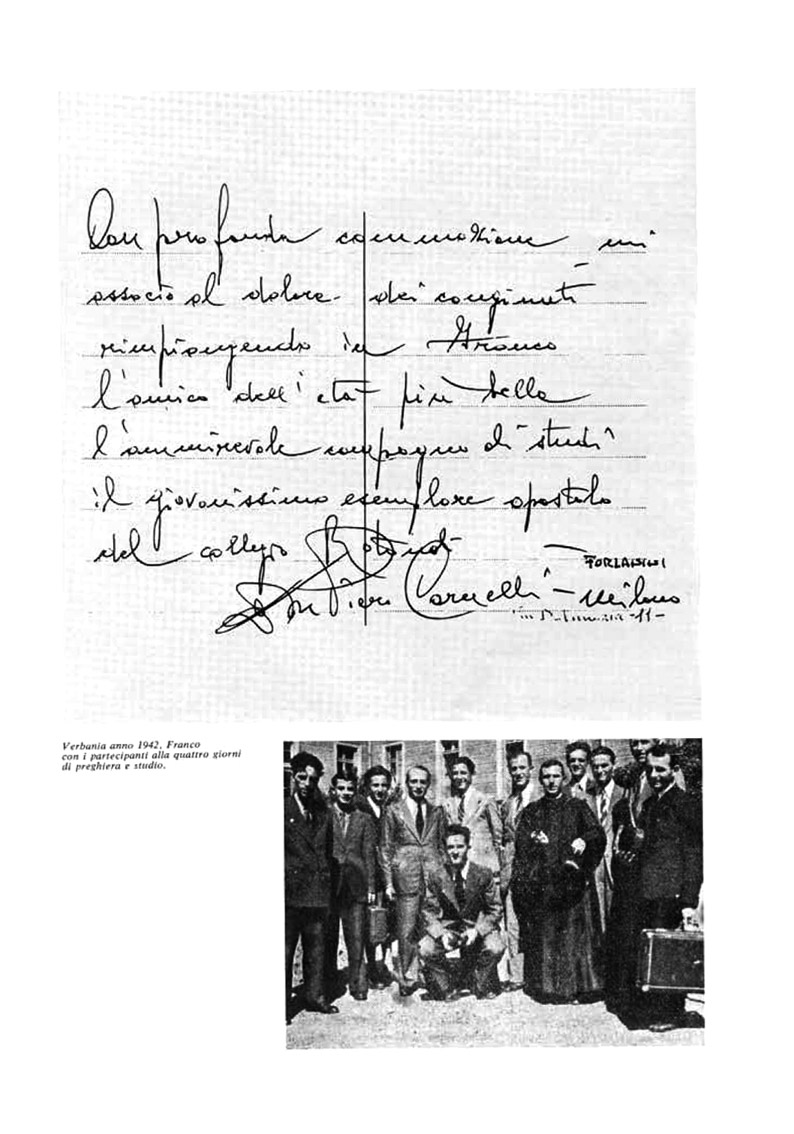 Con profonda commozione mi
associo al dolore dei congiunti
rimpiangendo in Franco
l'amico dell'età più bella
l'ammirevole compagno di studi
il giovanissimo esemplare apostolo
del collegio Rotondi
FORLANINI
Don Piero Milano
Verbania anno 1942, Franco
con i partecipanti alla quattro giorni
di preghiera e studio.